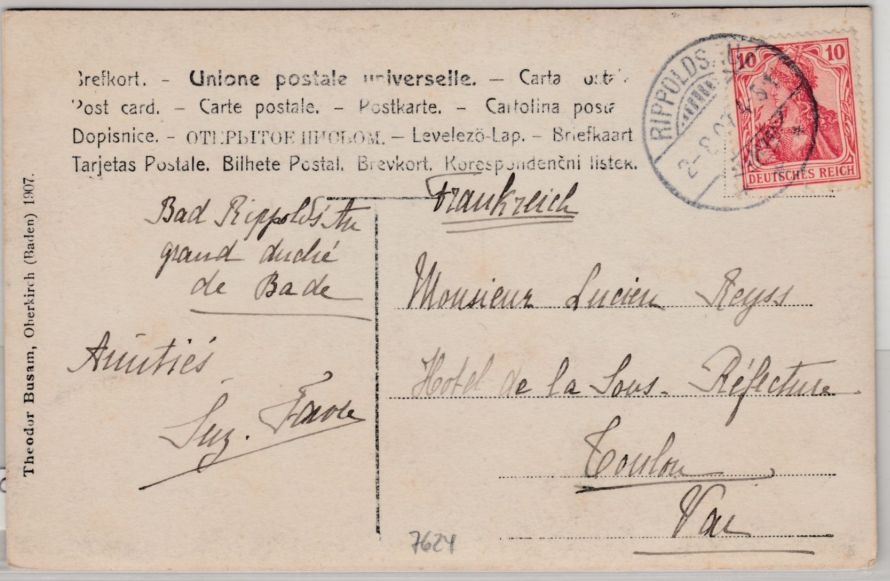 Brefkort. – Unione postale universelle. – Carta
Post card. – Carte postale. – Postkarte. – Cartolina posta
Dopisnice. – ОТКРЫТОЕ ПИСЬМО. – Levelezö-Lap. – Briefkaart
Tarjetas Postale. Bilhete Postal. Brevkort. Korespondenčni listek.
RIPPOLDSAU
10 10
DEUTSCHES REICH
Frankreich
Bad Rippolds'Au
grand duché
de Bade
Amitiés
Suz. Favre
Monsieur Lucien Reyss
Hotel de la Sous-Préfecture
Toulon
Var
7624
Theodor Busam, Oberkirch (Baden) 1907.